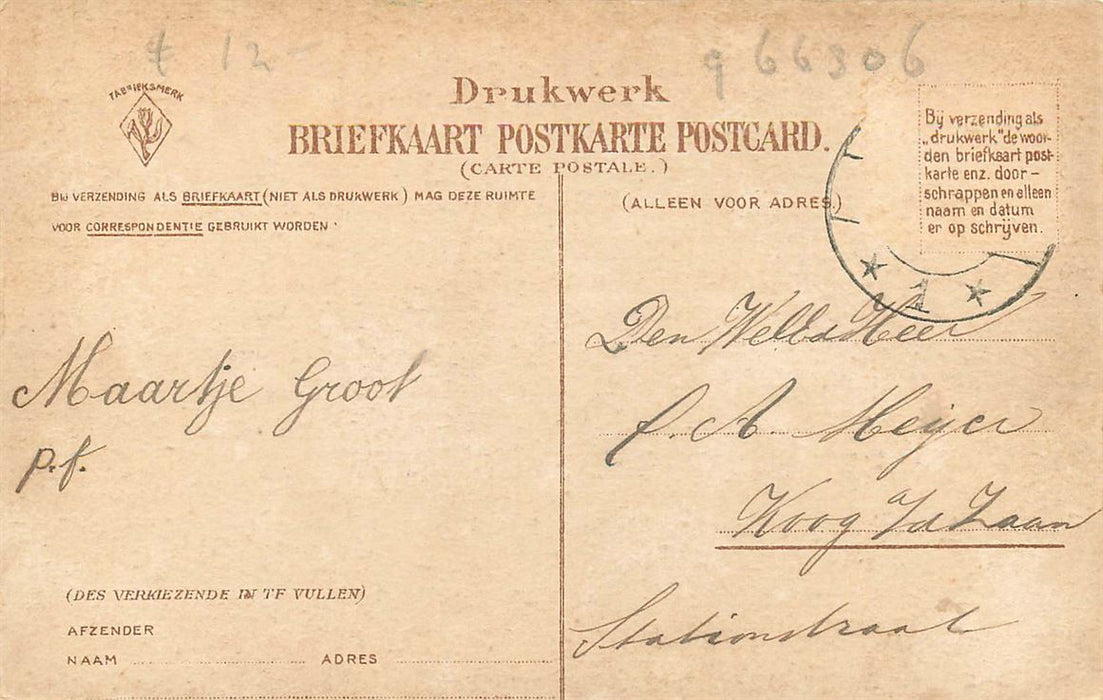 € 12-
966306
FABRIEKSMERK
Drukwerk
BRIEFKAART POSTKARTE POSTCARD.
(CARTE POSTALE.)
BIJ VERZENDING ALS BRIEFKAART (NIET ALS DRUKWERK) MAG DEZE RUIMTE
VOOR CORRESPONDENTIE GEBRUIKT WORDEN.
(ALLEEN VOOR ADRES.)
Bij verzending als
„drukwerk" de woor-
den briefkaart post-
karte enz. door-
schrappen en alleen
naam en datum
er op schrijven.
1
Maartje Groot
p.f.
(DES VERKIEZENDE IN TE VULLEN)
AFZENDER
NAAM ADRES
Den Heer
A. Meijer
Koog a/d Zaan
Stationstraat